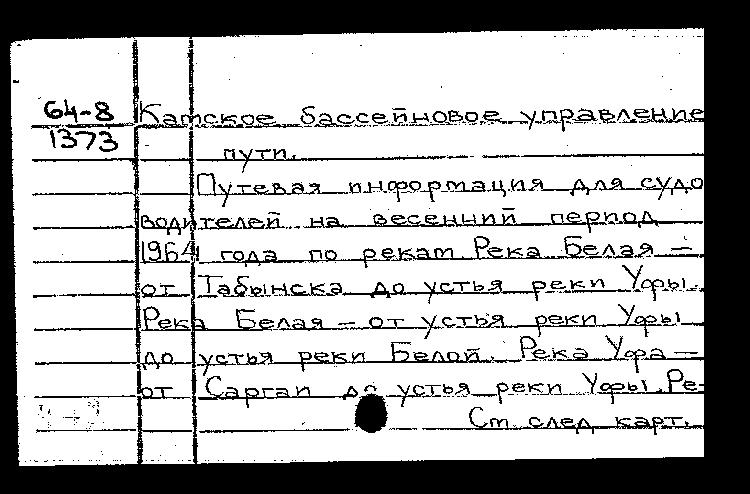 64-8 Катское бассейновое управление
1373
пути.
Путевая информация для судо
водителей на весенний период
1964 года по рекам Река Белая —
от Табынска до устья реки Уфы.
Река Белая — от устья реки Уфы
до устья реки Белой. Река Уфа —
от Саргаи до устья реки Уфы. Ре-
См. след карт.